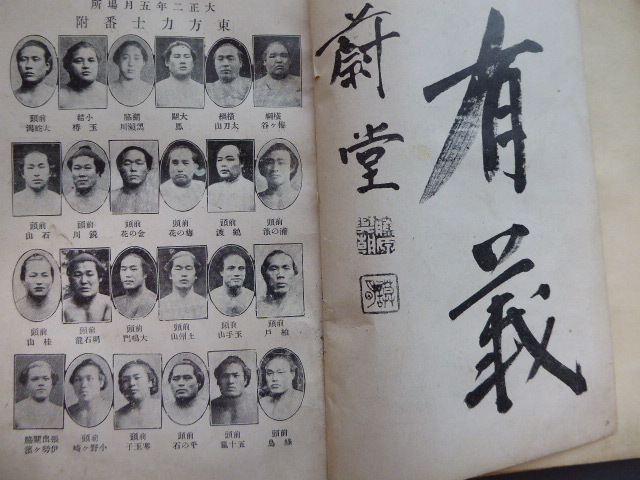 有義
蔚堂
大正二年五月場所
東方力士番附
横綱 梅ヶ谷
横綱 太刀山
大關 鳳
關脇 黒瀬川
小結 玉椿
前頭 大蛇潟
前頭 浦の濱
前頭 鶴渡
前頭
前頭 金の花
前頭 鏡川
前頭 石山
前頭 柏戸
前頭 玉手山
前頭 土州山
前頭 大鳴門
前頭 明石龍
前頭 桂山
前頭 綠島
前頭 五十嵐
前頭 平の石
前頭 寒玉子
前頭 小野ヶ崎
張出關脇 伊勢ヶ濱